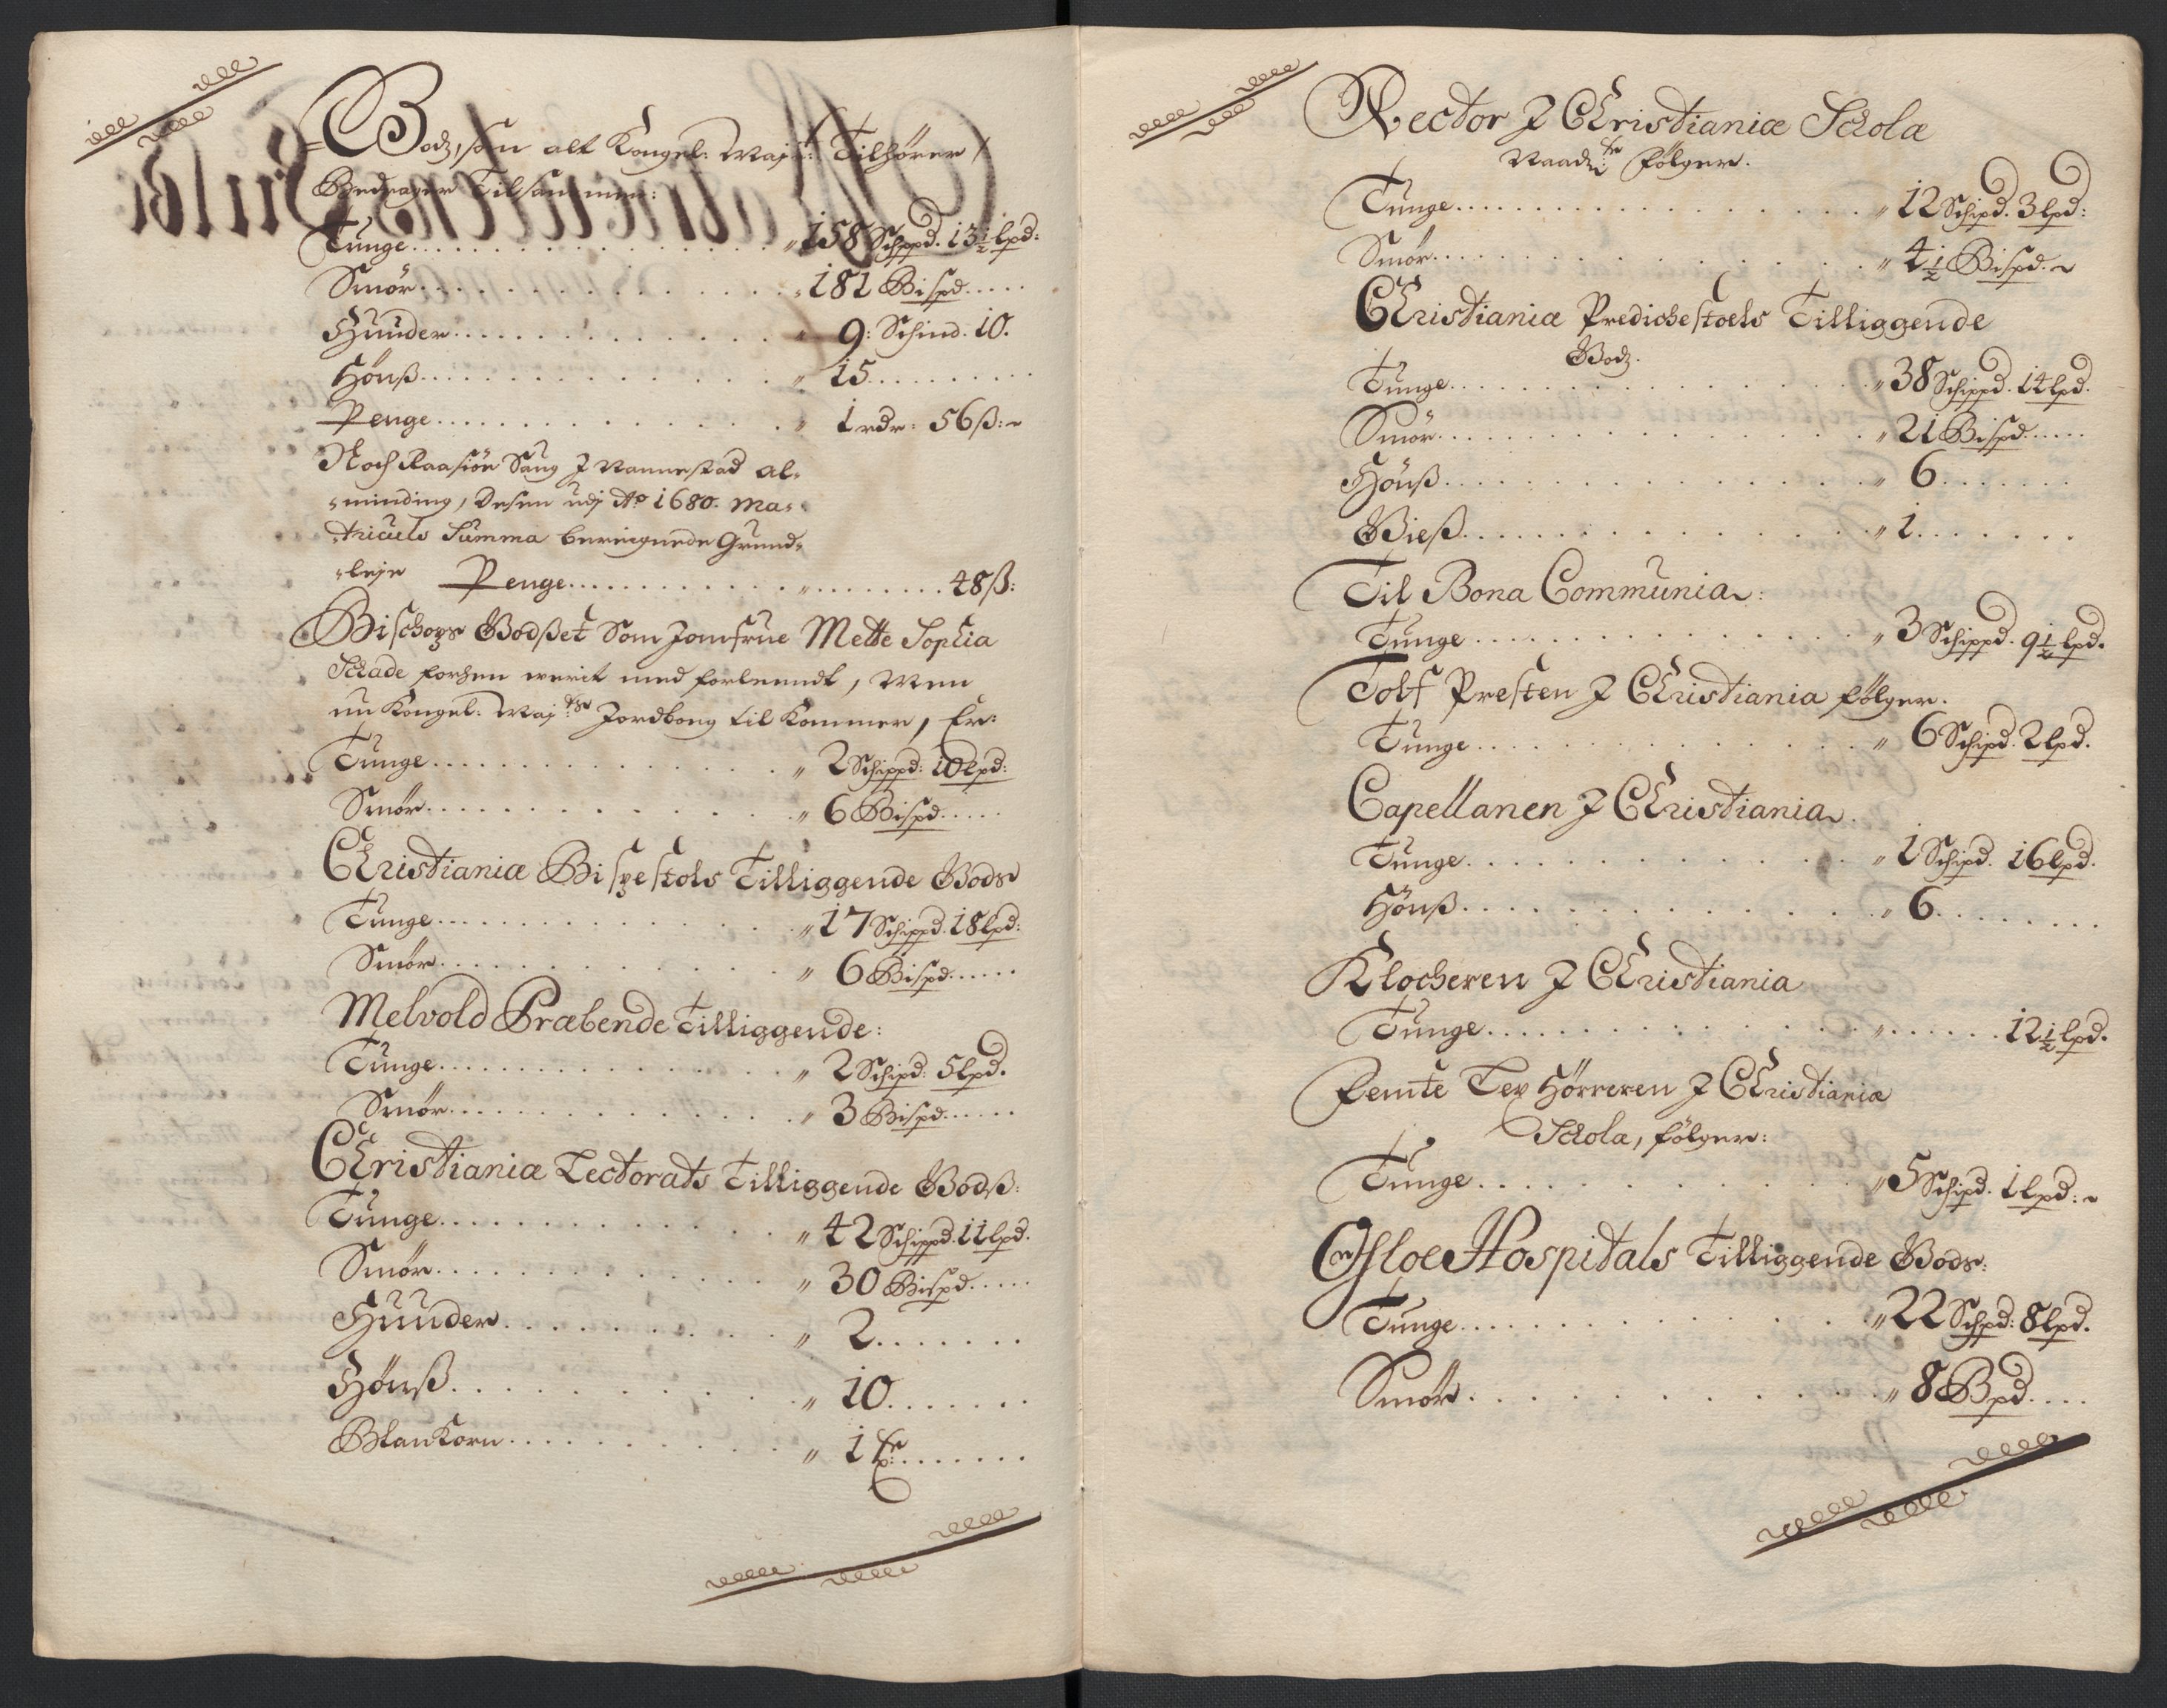 Godz, som alt Kongel: Maj:tt Tilhører,
Bedrager Tilsammen:
Tunge . . . " 158 Schippd. 13½ lpd:
Smør . . . " 181 Bispd . . .
Huuder . . . " 9: Schind. 10.
Hønß . . . " 15 . . .
Penge . . . " 1 rdr: 56 ß:
Noch Raasiøe Saug J Vannestad al-
minding, Desen udj Ao 1680. Ma-
triculs Summa beregnede Grund-
leje Penge . . . " . . . 48 ß:
Bischops Godßet Som Jomfrue Mette Sophia
Schade forhen verit med forleendt, Men
nu Kongel: Maj:ts Jordbong til Kommer, Er:
Tunge . . . " 2 Schippd: 10 lpd:
Smør . . . " 6 Bispd . . .
Christianiæ Bispestols Tilliggende Gods
Tunge . . . " 17 Schippd. 18 lpd:
Smør . . . " 6 Bispd . . .
Melvold Præbende Tilliggende:
Tunge . . . " 2 Schipd: 5 lpd.
Smør . . . " 3 Bispd . . .
Christianiæ Lectorats Tilliggende Godß:
Tunge . . . " 42 Schippd. 11 lpd.
Smør . . . " 30 Bispd . . .
Huuder . . . " 2 . . .
Hønß . . . " 10 . . .
Blankorn . . . " 1 . . .
Rector J Christianiæ Schola
Naad: følger.
Tunge . . . " 12 Schipd. 3 lpd:
Smør . . . " 4½ Bispd.
Christiania Predichestoels Tilliggende
Godz.
Tunge . . . " 38 Schippd. 14 lpd.
Smør . . . " 21 Bispd . . .
Hønß . . . " 6 . . .
Gieß . . . " 1 . . .
Til Bona Communia:
Tunge . . . " 3 Schippd. 9½ lpd.
Tolf Presten J Christiania følger.
Tunge . . . " 6 Schipd. 2 lpd.
Capellanen J Christiania.
Tunge . . . " 1 Schipd. 16 lpd.
Hønß . . . " 6 . . .
Klocheren J Christiania
Tunge . . . " . . . 12½ lpd.
Femte Lex Hørreren J Christianiæ
Schola, følger:
Tunge . . . " 5 Schipd. 1 lpd:
Osloe Hospitals Tilliggende Gods:
Tunge . . . " 22 Schpd: 8 lpd.
Smør . . . " 8 Bpd . . .